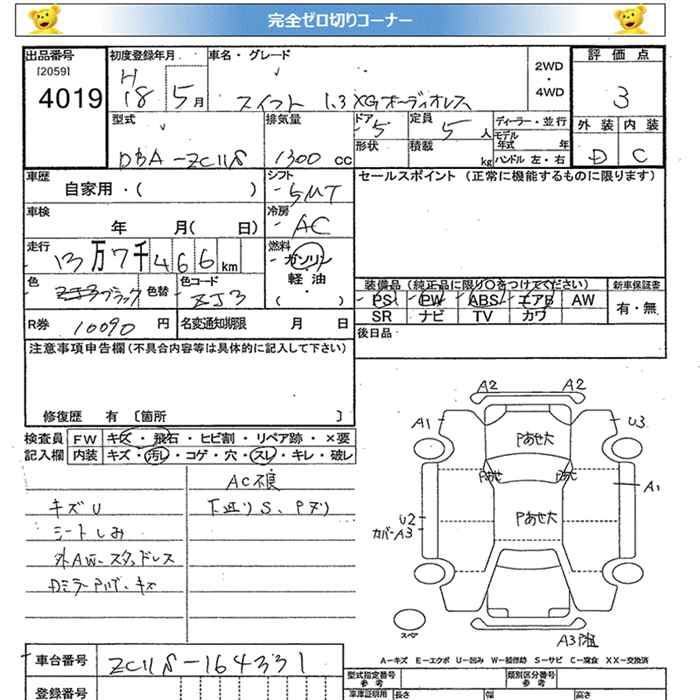 完全ゼロ切りコーナー
出品番号
[2059]
4019
初度登録年月
H18 5月
車名・グレード
スイフト 1.3XGオーディオレス
2WD
・
4WD
評価点
3
外装 内装
D C
型式
DBA-ZC11S
排気量
1300 cc
ドア
5
形状
定員
5 人
積載
kg
ディーラー・並行
モデル年式 年
ハンドル 左・右
車歴
自家用・( )
シフト
5MT
セールスポイント (正常に機能するものに限ります)
車検
年 月( 日)
冷房
AC
走行
13万7千466km
燃料
ガソリン
軽油
( )
色
ブラック
色替
色コード
ZJ3
装備品 (純正品に限り○をつけてください)
PS PW ABS エアB AW
SR ナビ TV カワ
新車保証書
有・無
R券 10090 円
名変通知期限 月 日
後日品
注意事項申告欄(不具合内容等は具体的に記入して下さい)
修復歴 有 〔箇所 〕
検査員
記入欄
FW キズ・飛石・ヒビ割・リペア跡・×要
内装 キズ・汚レ・コゲ・穴・スレ・キレ・破レ
AC不良
キズU
下廻りS、Pヌリ
シートしみ
外AW、スタッドレス
キズ
A2 A2
A1 U3
Pあせ大
Pあせ Pあせ
A1
U2
カバーA3
Pあせ大
スペア
A3
A-キズ E-エクボ U-凹み W-補修跡 S-サビ C-腐食 XX-交換済
車台番号 ZC11S-164331
型式指定番号
参考
類別区分番号
参考
登録番号
車庫証明用
長さ 幅 高さ